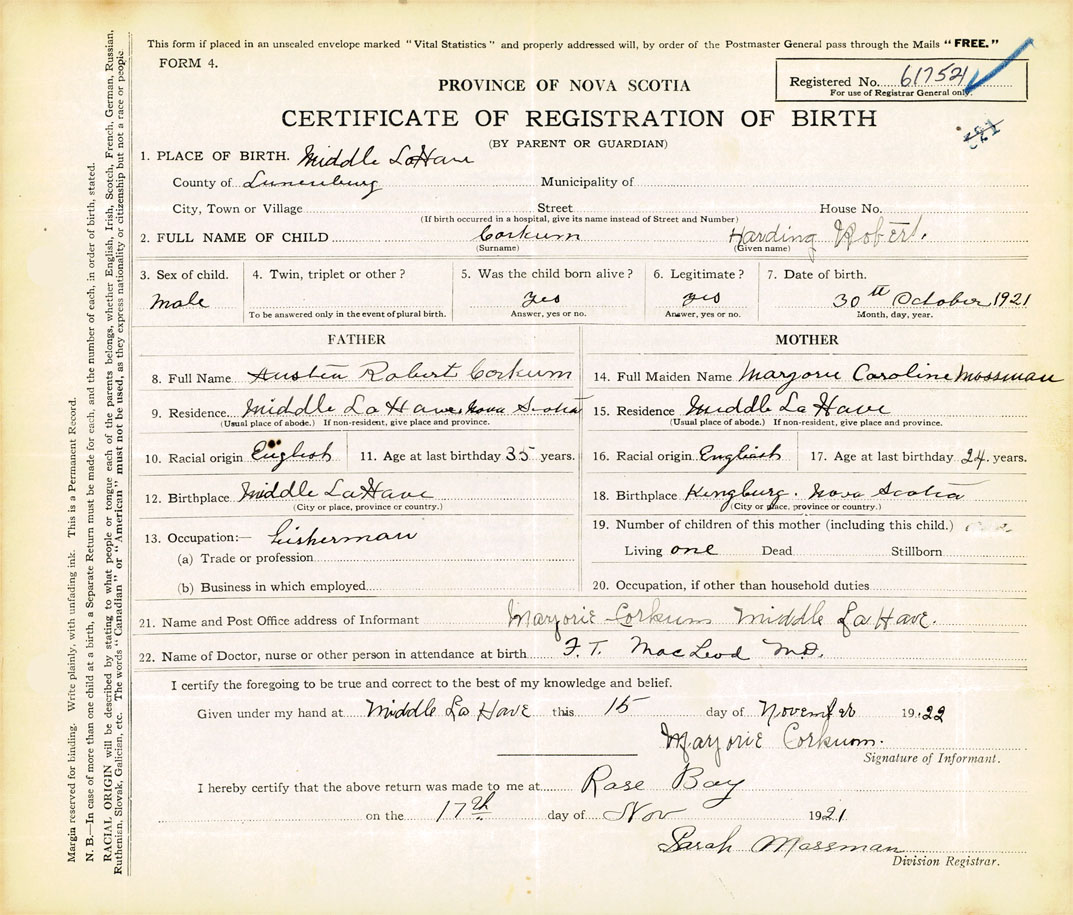 This form if placed in an unsealed envelope marked "Vital Statistics" and properly addressed will, by order of the Postmaster General pass through the Mails "FREE."
FORM 4.
Registered No. 617521
For use of Registrar General only.
PROVINCE OF NOVA SCOTIA
CERTIFICATE OF REGISTRATION OF BIRTH
(BY PARENT OR GUARDIAN)
1. PLACE OF BIRTH. Middle LaHave
County of Lunenburg Municipality of
City, Town or Village Street House No.
(If birth occurred in a hospital, give its name instead of Street and Number)
2. FULL NAME OF CHILD Corkum Harding Robert.
(Surname) (Given name)
3. Sex of child. 4. Twin, triplet or other? 5. Was the child born alive? 6. Legitimate? 7. Date of birth.
male yes yes 30th October 1921
To be answered only in the event of plural birth. Answer, yes or no. Answer, yes or no. Month, day, year.
FATHER MOTHER
8. Full Name Austin Robert Corkum 14. Full Maiden Name Marjorie Caroline Mossman
9. Residence Middle LaHave Nova Scotia 15. Residence Middle LaHave
(Usual place of abode.) If non-resident, give place and province. (Usual place of abode.) If non-resident, give place and province.
10. Racial origin English 11. Age at last birthday 35 years. 16. Racial origin English 17. Age at last birthday 24. years.
12. Birthplace Middle LaHave 18. Birthplace Kingburg. Nova Scotia
(City or place, province or country.) (City or place, province or country.)
13. Occupation:— Fisherman 19. Number of children of this mother (including this child.)
(a) Trade or profession Living one Dead Stillborn
(b) Business in which employed 20. Occupation, if other than household duties
21. Name and Post Office address of Informant Marjorie Corkum Middle La Have.
22. Name of Doctor, nurse or other person in attendance at birth F. T. MacLeod M.D.
I certify the foregoing to be true and correct to the best of my knowledge and belief.
Given under my hand at Middle La Have this 15 day of November 1922
Marjorie Corkum.
Signature of Informant.
I hereby certify that the above return was made to me at Rose Bay
on the 17th day of Nov 1921
Sarah Mossman
Division Registrar.
Margin reserved for binding. Write plainly, with unfading ink. This is a Permanent Record.
N. B.—In case of more than one child at a birth, a Separate Return must be made for each, and the number of each, in order of birth, stated.
RACIAL ORIGIN will be described by stating to what people or tongue each of the parents belongs, whether English, Irish, Scotch, French, German, Russian,
Ruthenian, Slovak, Galician, etc. The words "Canadian" or "American" must not be used, as they express nationality or citizenship but not a race or people.